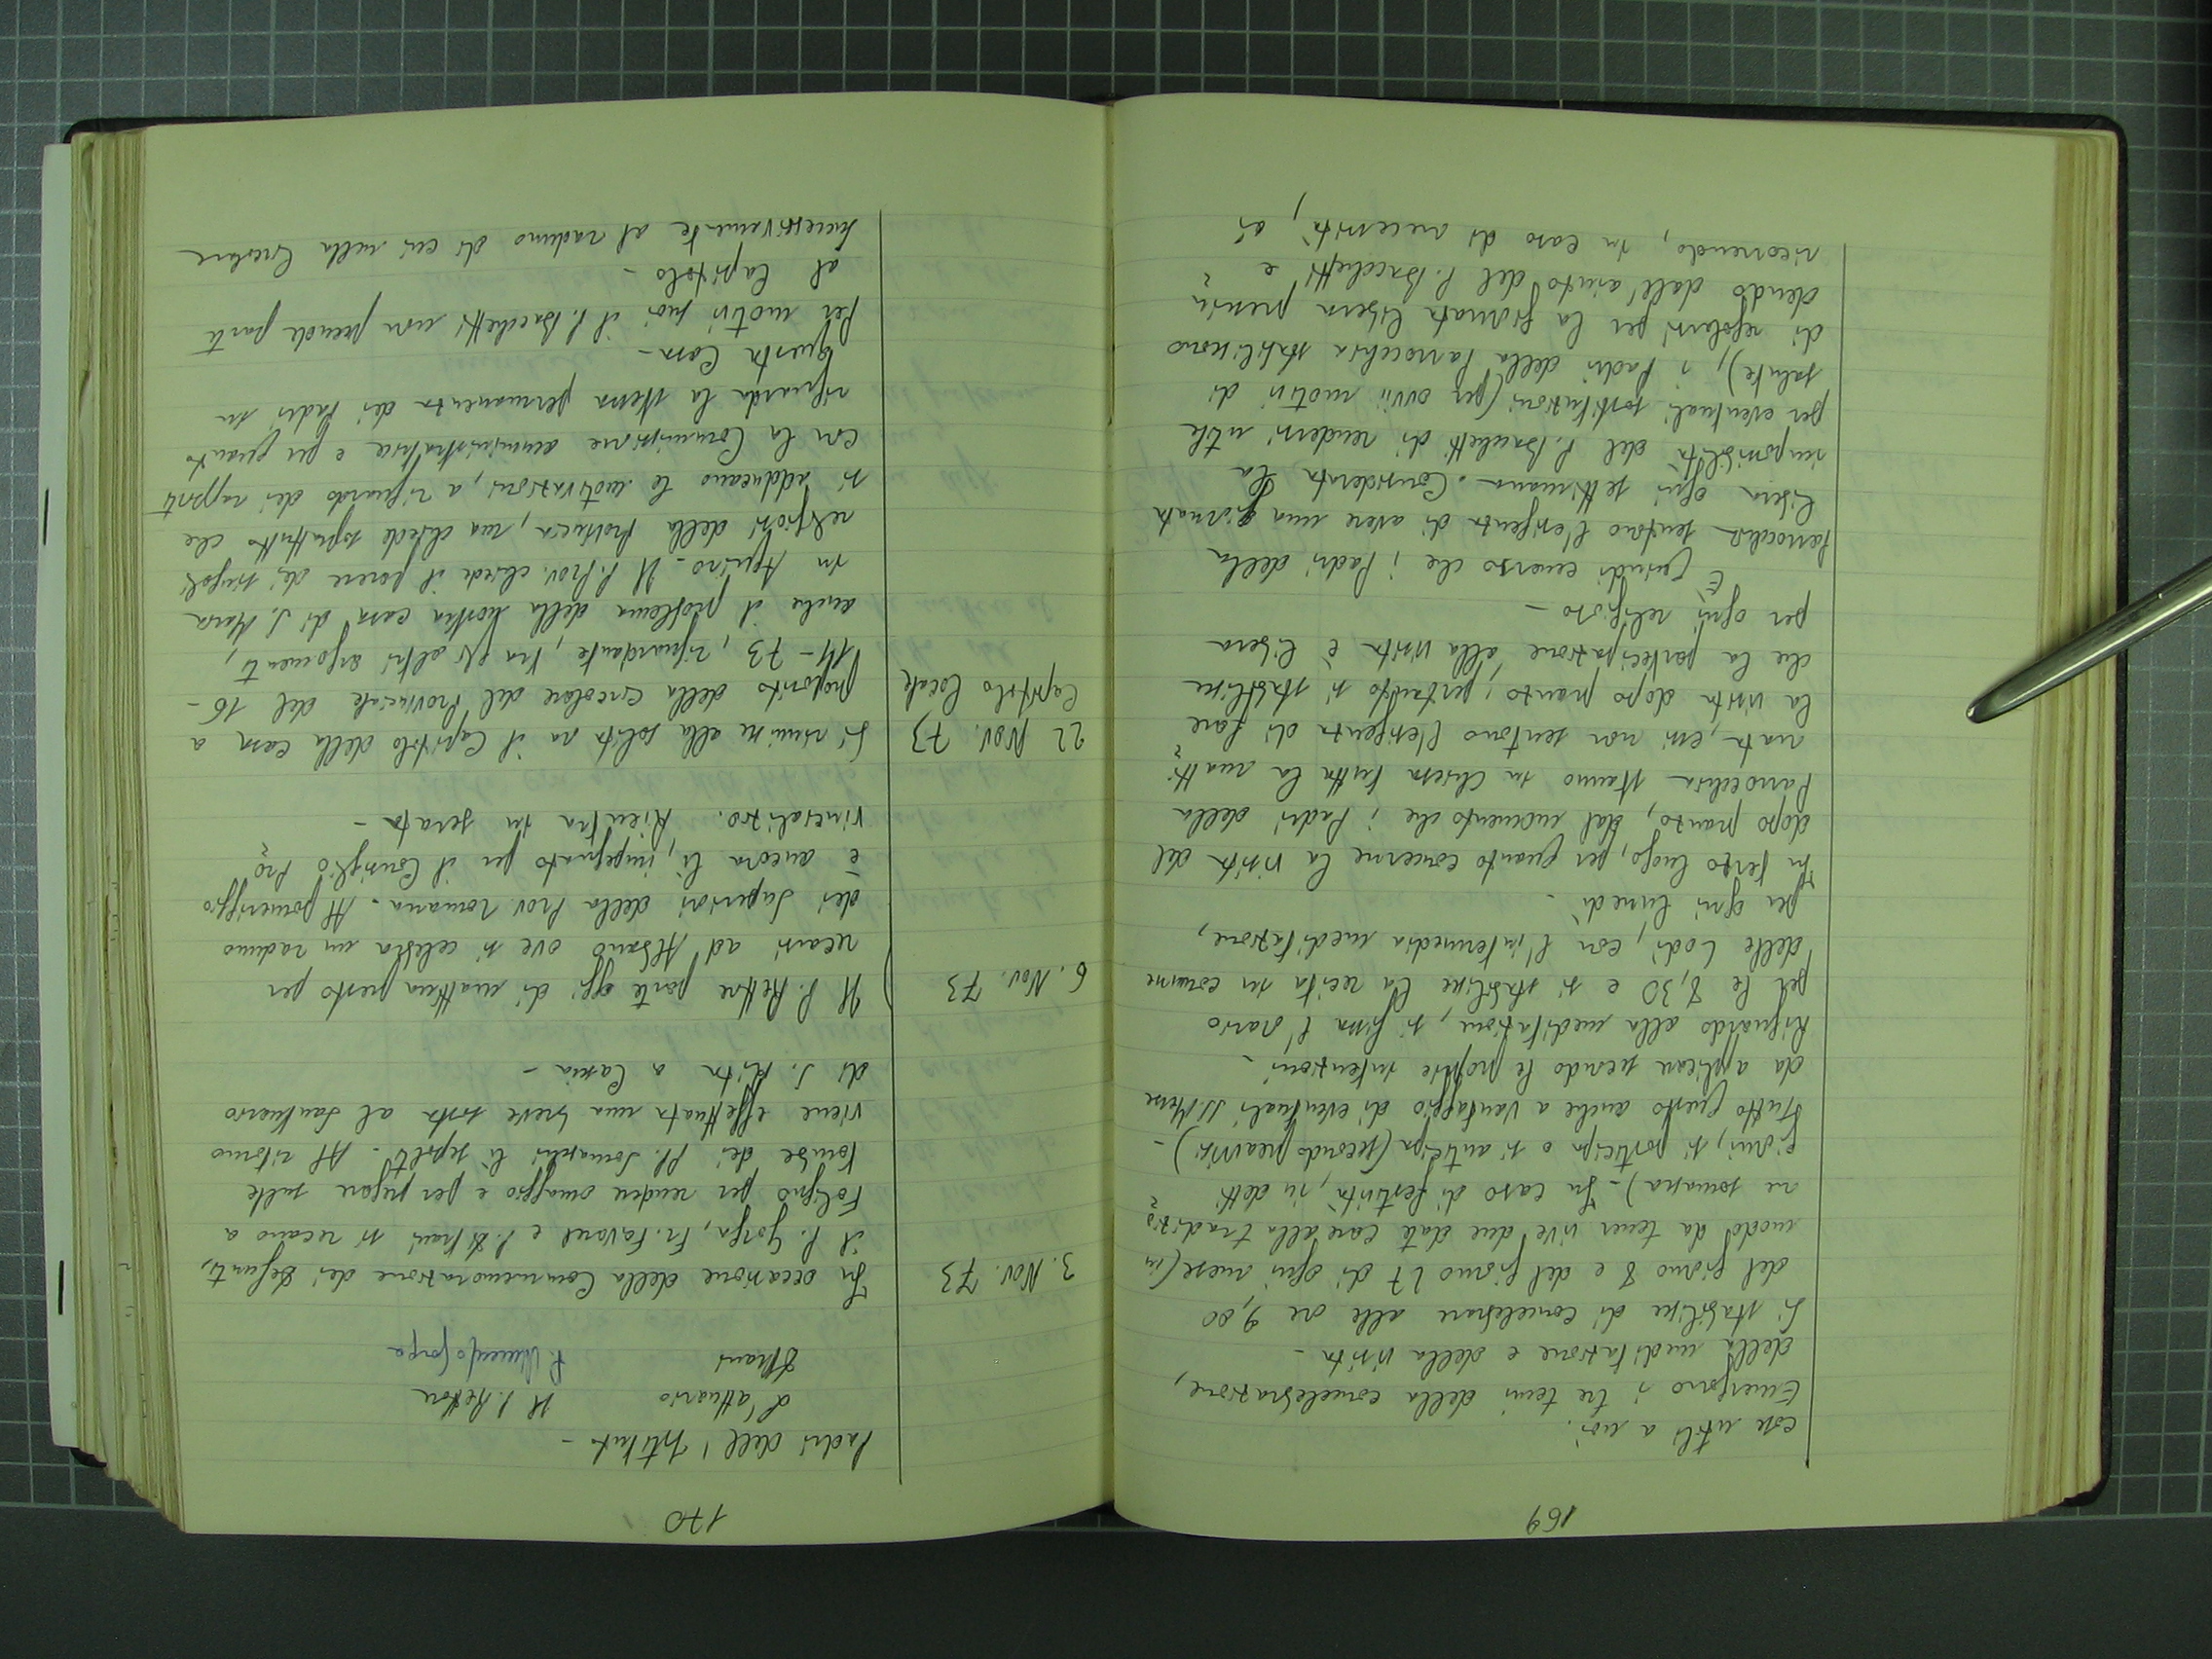 169
cose utili a noi.
Emergono i tre temi della concelebrazione,
della meditazione e della visita -
Si stabilisce di concelebrare alle ore 9,00
del giorno 8 e del giorno 27 di ogni mese (in
modo da tener vive due date care alla tradizio=
ne somasca) - In caso di festività, in detti
giorni, si posticipa o si anticipa (secondo preavvisi) -
Tutto questo anche a vantaggio di eventuali SS. Messe
da applicare secondo le proprie intenzioni -
Riguardo alla meditazione, si fissa l'orario
per le 8,30 e si stabilisce la recita in comune
delle Lodi, con l'intermedia meditazione,
per ogni lunedì -
In terzo luogo, per quanto concerne la visita del
dopo pranzo, dal momento che i Padri della
Parrocchia stanno in chiesa tutta la matti=
nata, essi non sentono l'esigenza di fare
la visita dopo pranzo; pertanto si stabilisce
che la partecipazione alla visita è libera
per ogni religioso -
È quindi emerso che i Padri della
Parrocchia sentono l'esigenza di avere una giornata
libera ogni settimana. Considerata la
impossibilità del P. Bacchetti di rendersi utile
per eventuali sostituzioni (per ovvii motivi di
salute), i Padri della Parrocchia stabiliscono
di regolarsi per la giornata libera prescin=
dendo dall'aiuto del P. Bacchetti e
ricorrendo, in caso di necessità, ai
170
Padri dell'Istituto -
L'attuario Il P. Rettore
P. Vincenzo Gorga
3. Nov. 73
In occasione della Commemorazione dei Defunti,
il P. Gorga, Fr. Favaro e P. si recano a
Foligno per rendere omaggio e per pregare sulle
tombe dei PP. Somaschi lì sepolti - Al ritorno
viene effettuata una breve sosta al Santuario
di S. Rita a Cascia -
6. Nov. 73
Il P. Rettore parte oggi di mattina presto per
recarsi ad Albano ove si celebra un raduno
dei Superiori della Prov. romana - Al pomeriggio
è ancora lì, impegnato per il Consiglio Pro=
vincializio. Rientra in serata -
22 Nov. 73
Capitolo locale
Si riunisce alla solita ora il Capitolo della casa a
proposito della circolare del Provinciale del 16 -
XI - 73, riguardante, tra gli altri argomenti,
anche il problema della nostra casa di S. Maria
in Aquiro - Il P. Prov. chiede il parere dei singoli
religiosi della Provincia, ma chiede soprattutto che
si adducano le motivazioni, a riguardo dei rapporti
con la Commissione amministratrice e per quanto
riguarda la stessa permanenza dei Padri in
questa Casa -
Per motivi suoi il P. Bacchetti non prende parte
al Capitolo -
Successivamente al raduno di cui nella Circolare